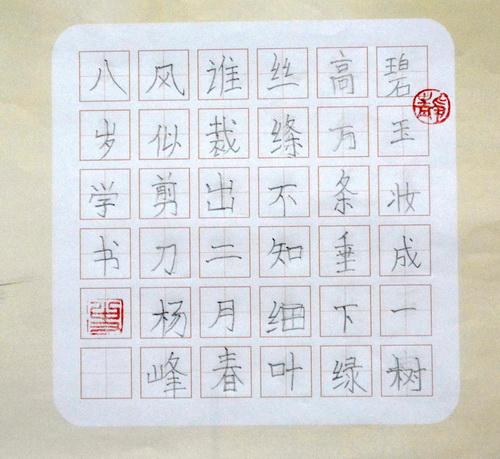 碧玉妆成一树
高万条垂下绿
丝绦不知细叶
谁裁出二月春
风似剪刀杨峰
八岁学书